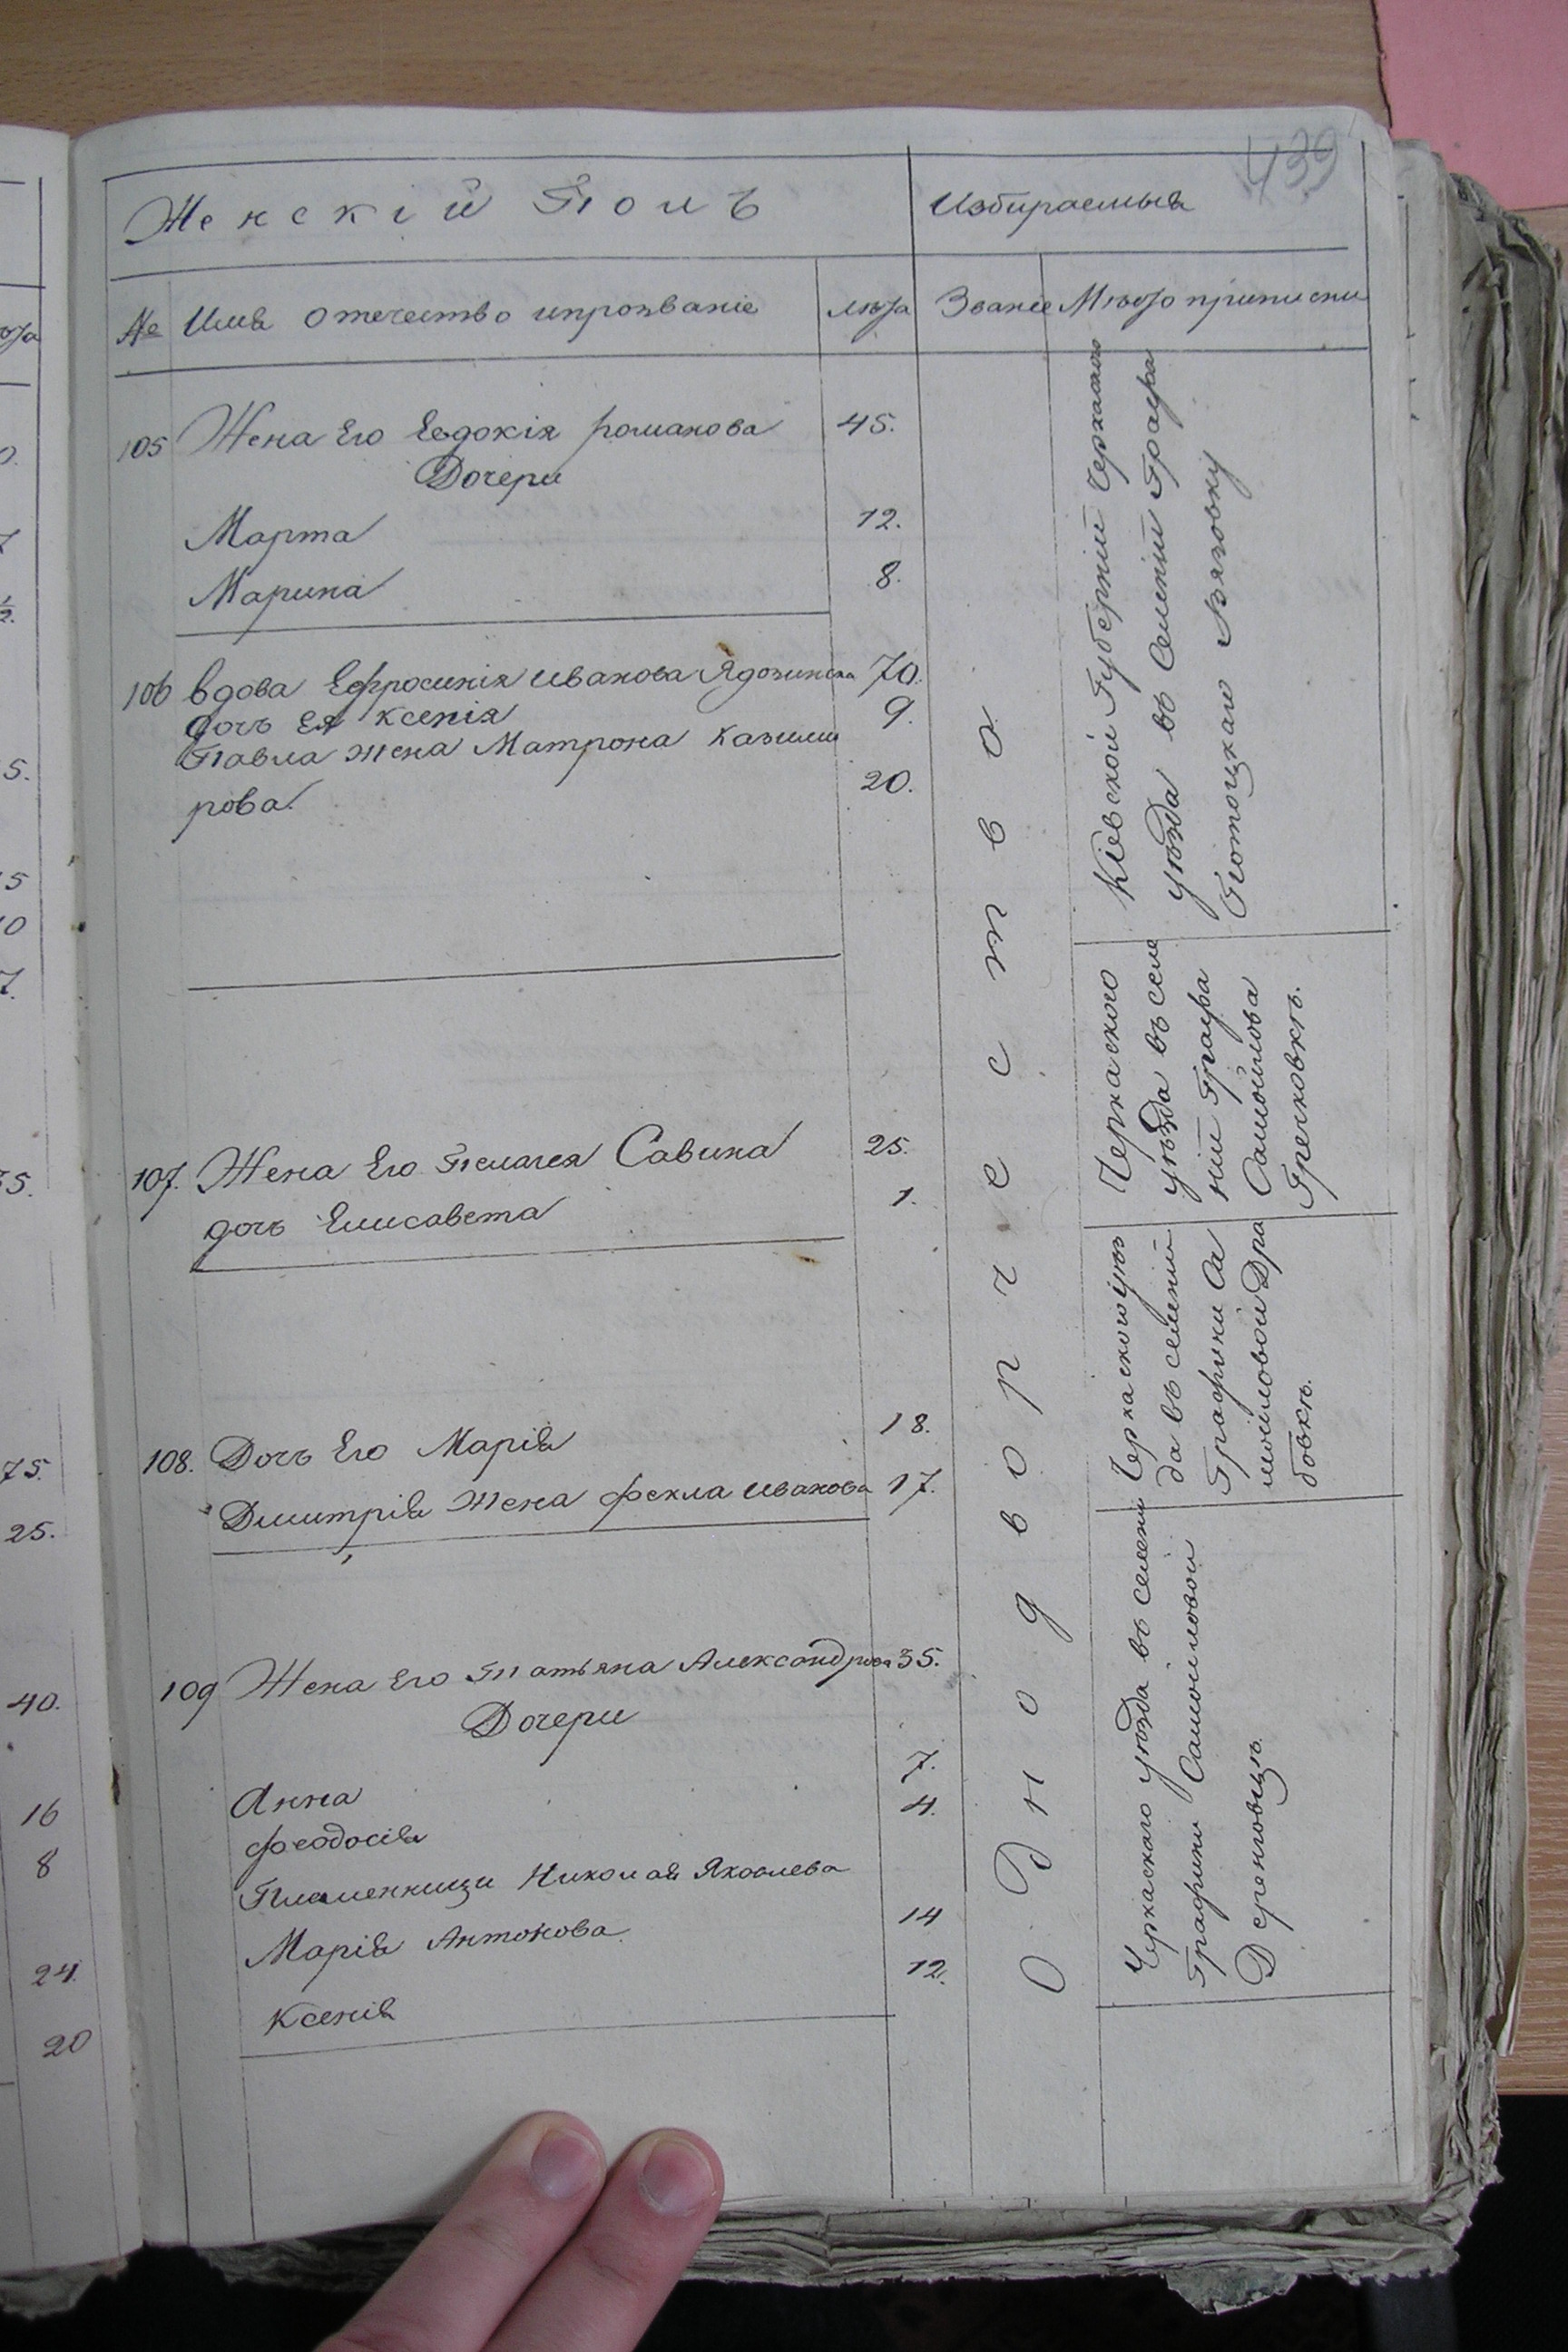 439
Женскій Полъ
Избираемыя
№ Имя отечество и прозваніе
лѣта
Званіе
Мѣсто приписки
105 Жена Его Евдокія романова 45.
Дочери
Марта 12.
Марина 8.
106 вдова Ефросинія иванова 70.
дочь Ея Ксенія 9.
Павла жена Матрона казими
рова 20.
107. Жена Его Пелагея Савина 25.
дочь Елисавета 1.
108. Дочь Его Марія 18.
Димитрія жена фекла иванова 17.
109 Жена Его Татьяна Александрова 35.
Дочери
Анна 7.
феодосія 4.
Племенницы Николая Яковлева
Марія Антонова 14
Ксенія 12.
Однодворчество
Кіевской Губерніи Черкаского
уѣзда въ Селеніи Графа
Потоцкаго Вязовку
Черкаского
уѣзда въ селе
ніи Графа
Самойлова
Гречковкѣ.
Черкаского уѣз
да въ селеніи
Графини Са
мойловой Дра
бовкѣ.
Черкаскаго уѣзда въ селени
Графини Самойловой
5.
5
10
7.
75.
25.
40.
16
8
24.
20